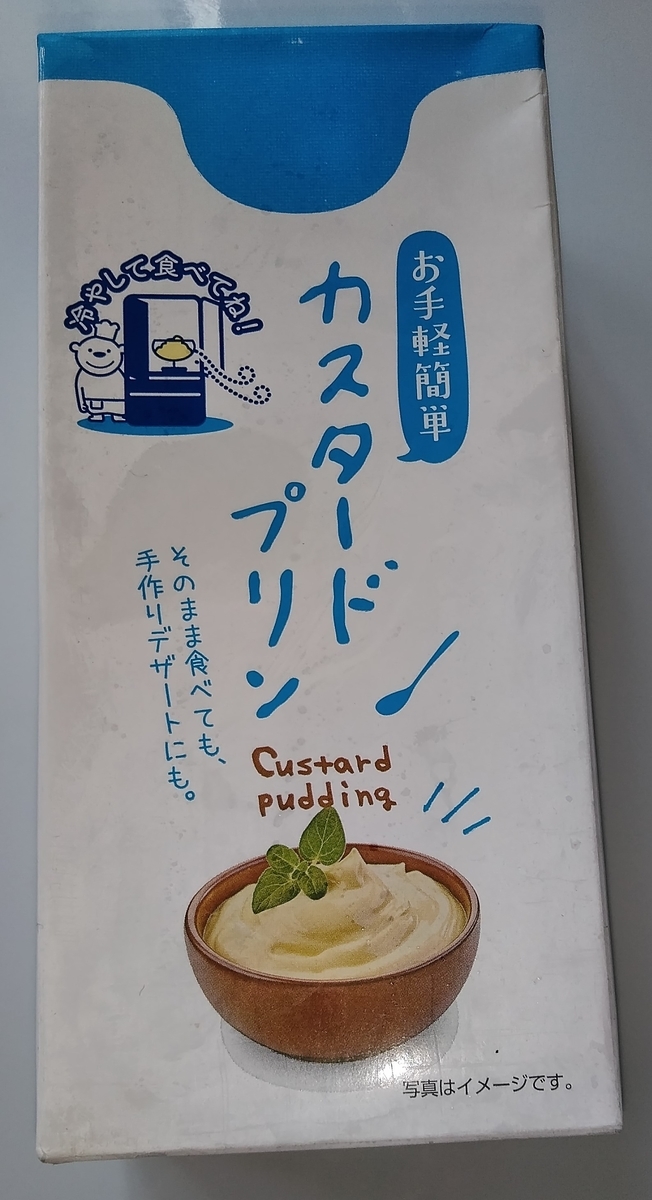 冷やして食べてね!
お手軽簡単
カスタード
プリン
そのまま食べても、
手作りデザートにも。
Custard
pudding
写真はイメージです。